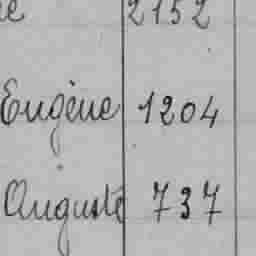 2152
Eugène 1204
Auguste 737